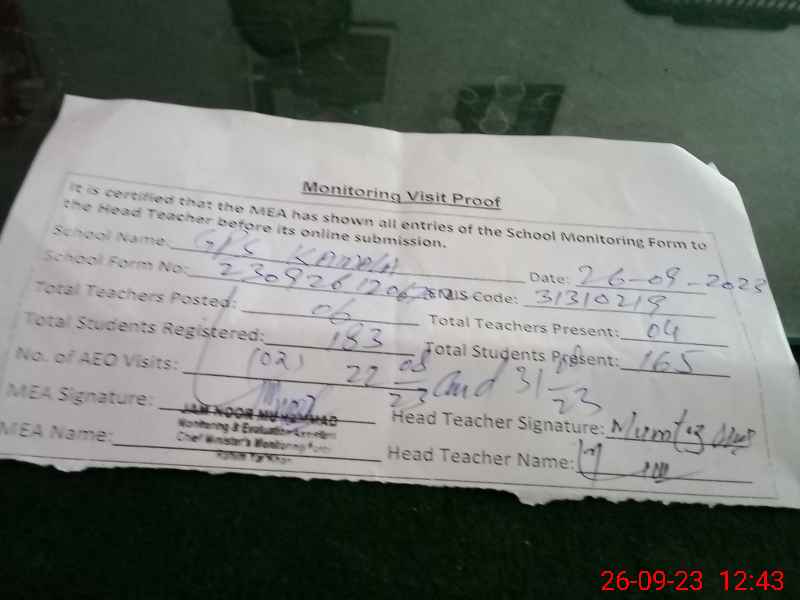 Monitoring Visit Proof
It is certified that the MEA has shown all entries of the School Monitoring Form to
the Head Teacher before its online submission.
School Name: GPS Date: 26-09-2023
School Form No: EMIS Code: 31310219
Total Teachers Posted: 06 Total Teachers Present: 04
Total Students Registered: 183 Total Students Present: 165
No. of AEO Visits: (02) 22 08/23 and 31 08/23
MEA Signature: Head Teacher Signature: Mumtaz
JAM NOOR MUHAMMAD
Monitoring & Evaluation Assistant
Chief Minister's Monitoring Force
Rahim Yar Khan
MEA Name: Head Teacher Name:
26-09-23 12:43